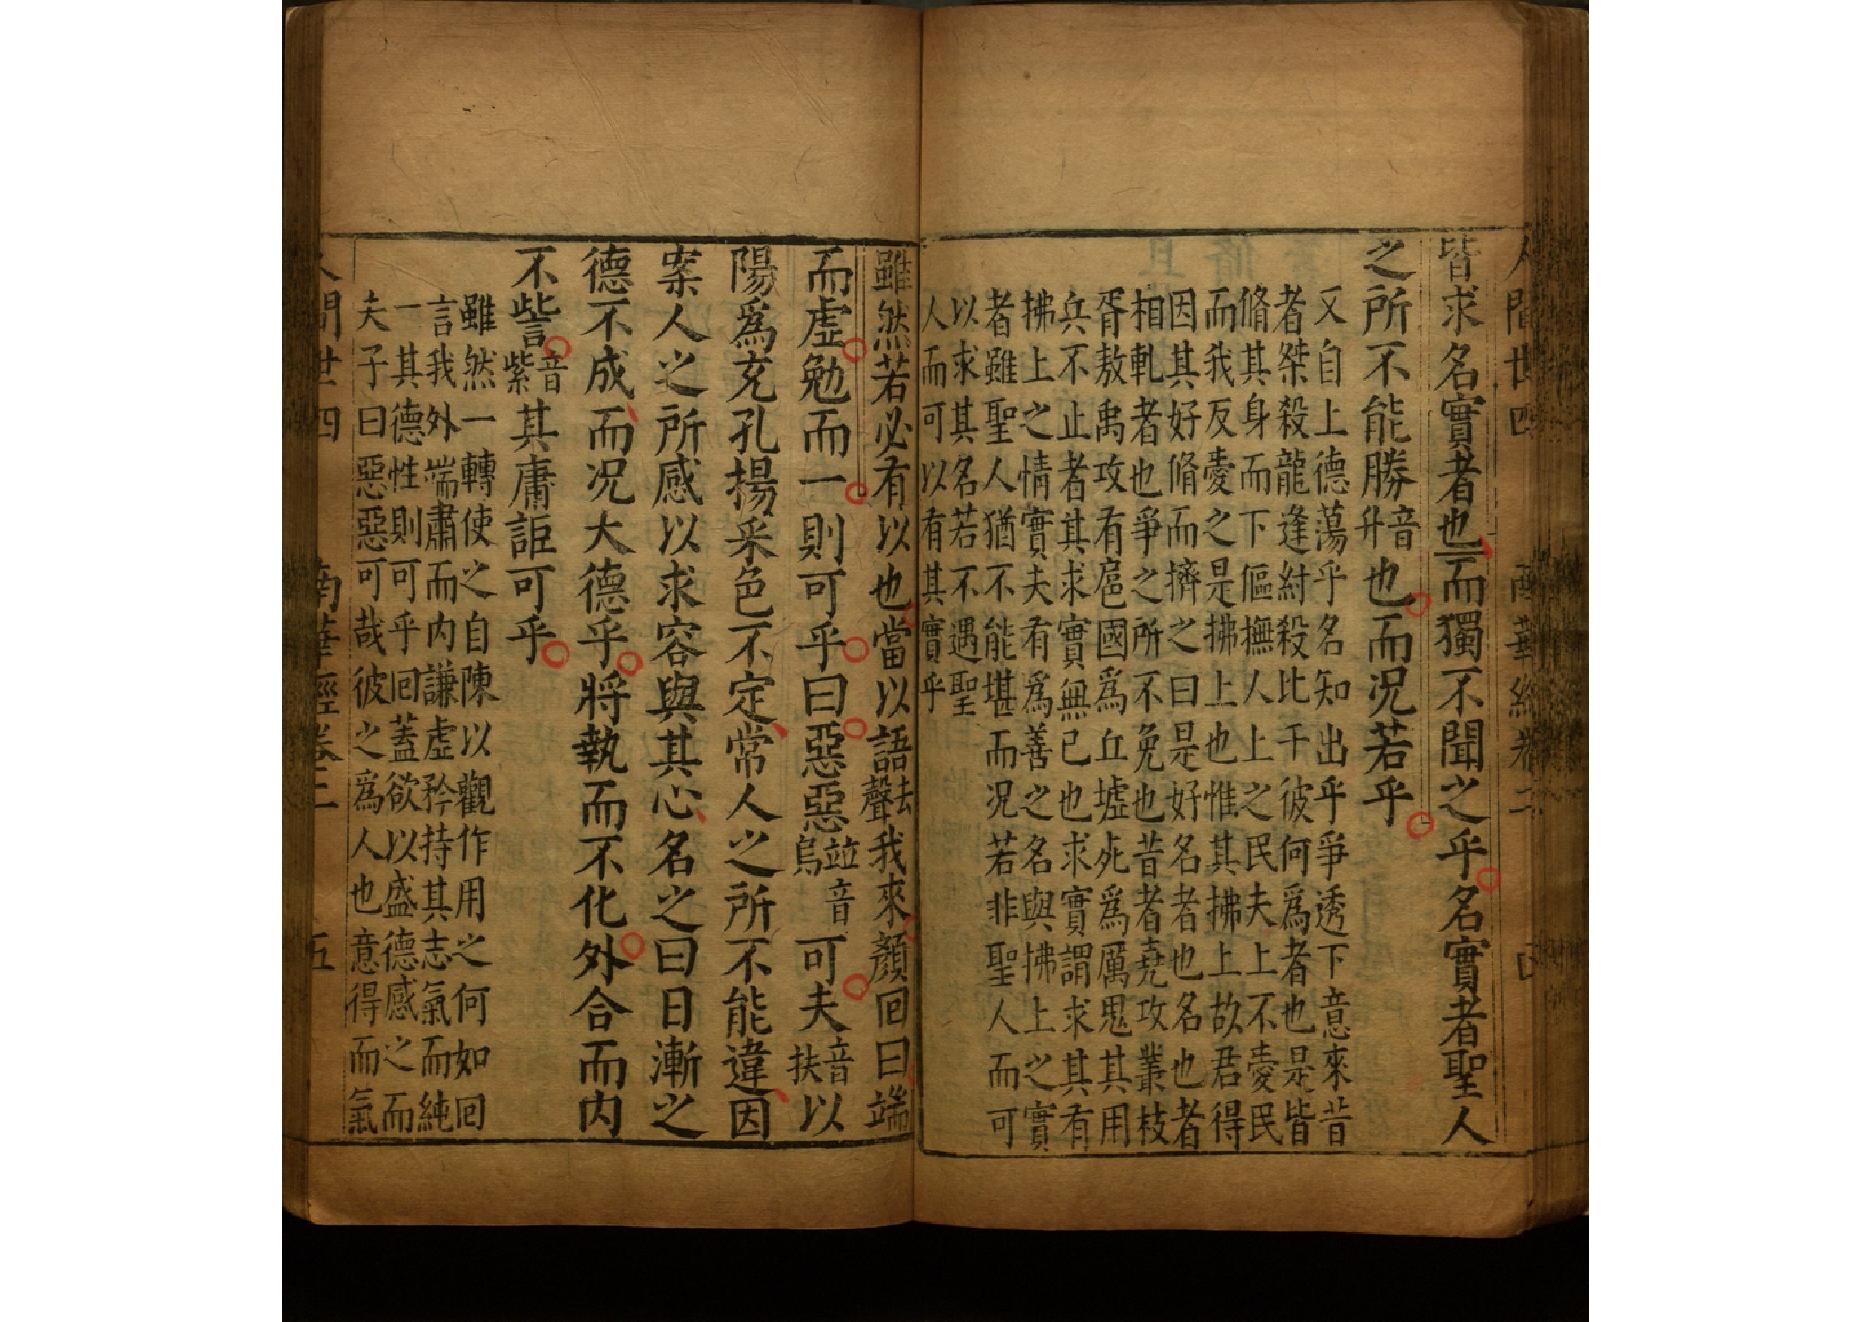 人間世四 南華經卷二 四
皆求名實者也而獨不聞之乎名實者聖人
之所不能勝音升也而况若乎
又自上德蕩乎名知出乎爭透下意來昔
者桀殺龍逢紂殺比干彼何爲者也是皆
脩其身而下傴撫人上之民夫上不憂民
而我反憂之是拂上也惟其拂上故君得
因其好脩而擠之曰是好名者也名也者
相軋者也爭之所不免也昔者堯攻叢枝
胥敖禹攻有扈國爲丘墟死爲厲鬼其用
兵不止者其求實無已也求實謂求其有
拂上之情實夫有爲善之名與拂上之實
者雖聖人猶不能堪而况若非聖人而可
以求其名若不遇聖
人而可以有其實乎
雖然若必有以也當以語去聲我來顏回曰端
而虛勉而一則可乎曰惡惡並音烏可夫音扶以
陽爲充孔揚采色不定常人之所不能違因
案人之所感以求容與其心名之曰日漸之
德不成而况大德乎將執而不化外合而内
不訾音紫其庸詎可乎
雖然一轉使之自陳以觀作用之何如回
言我外端肅而内謙虛矜持其志氣而純
一其德性則可乎回蓋欲以盛德感之而
夫子曰惡惡可哉彼之爲人也意得而氣
人間世四 南華經卷二 五